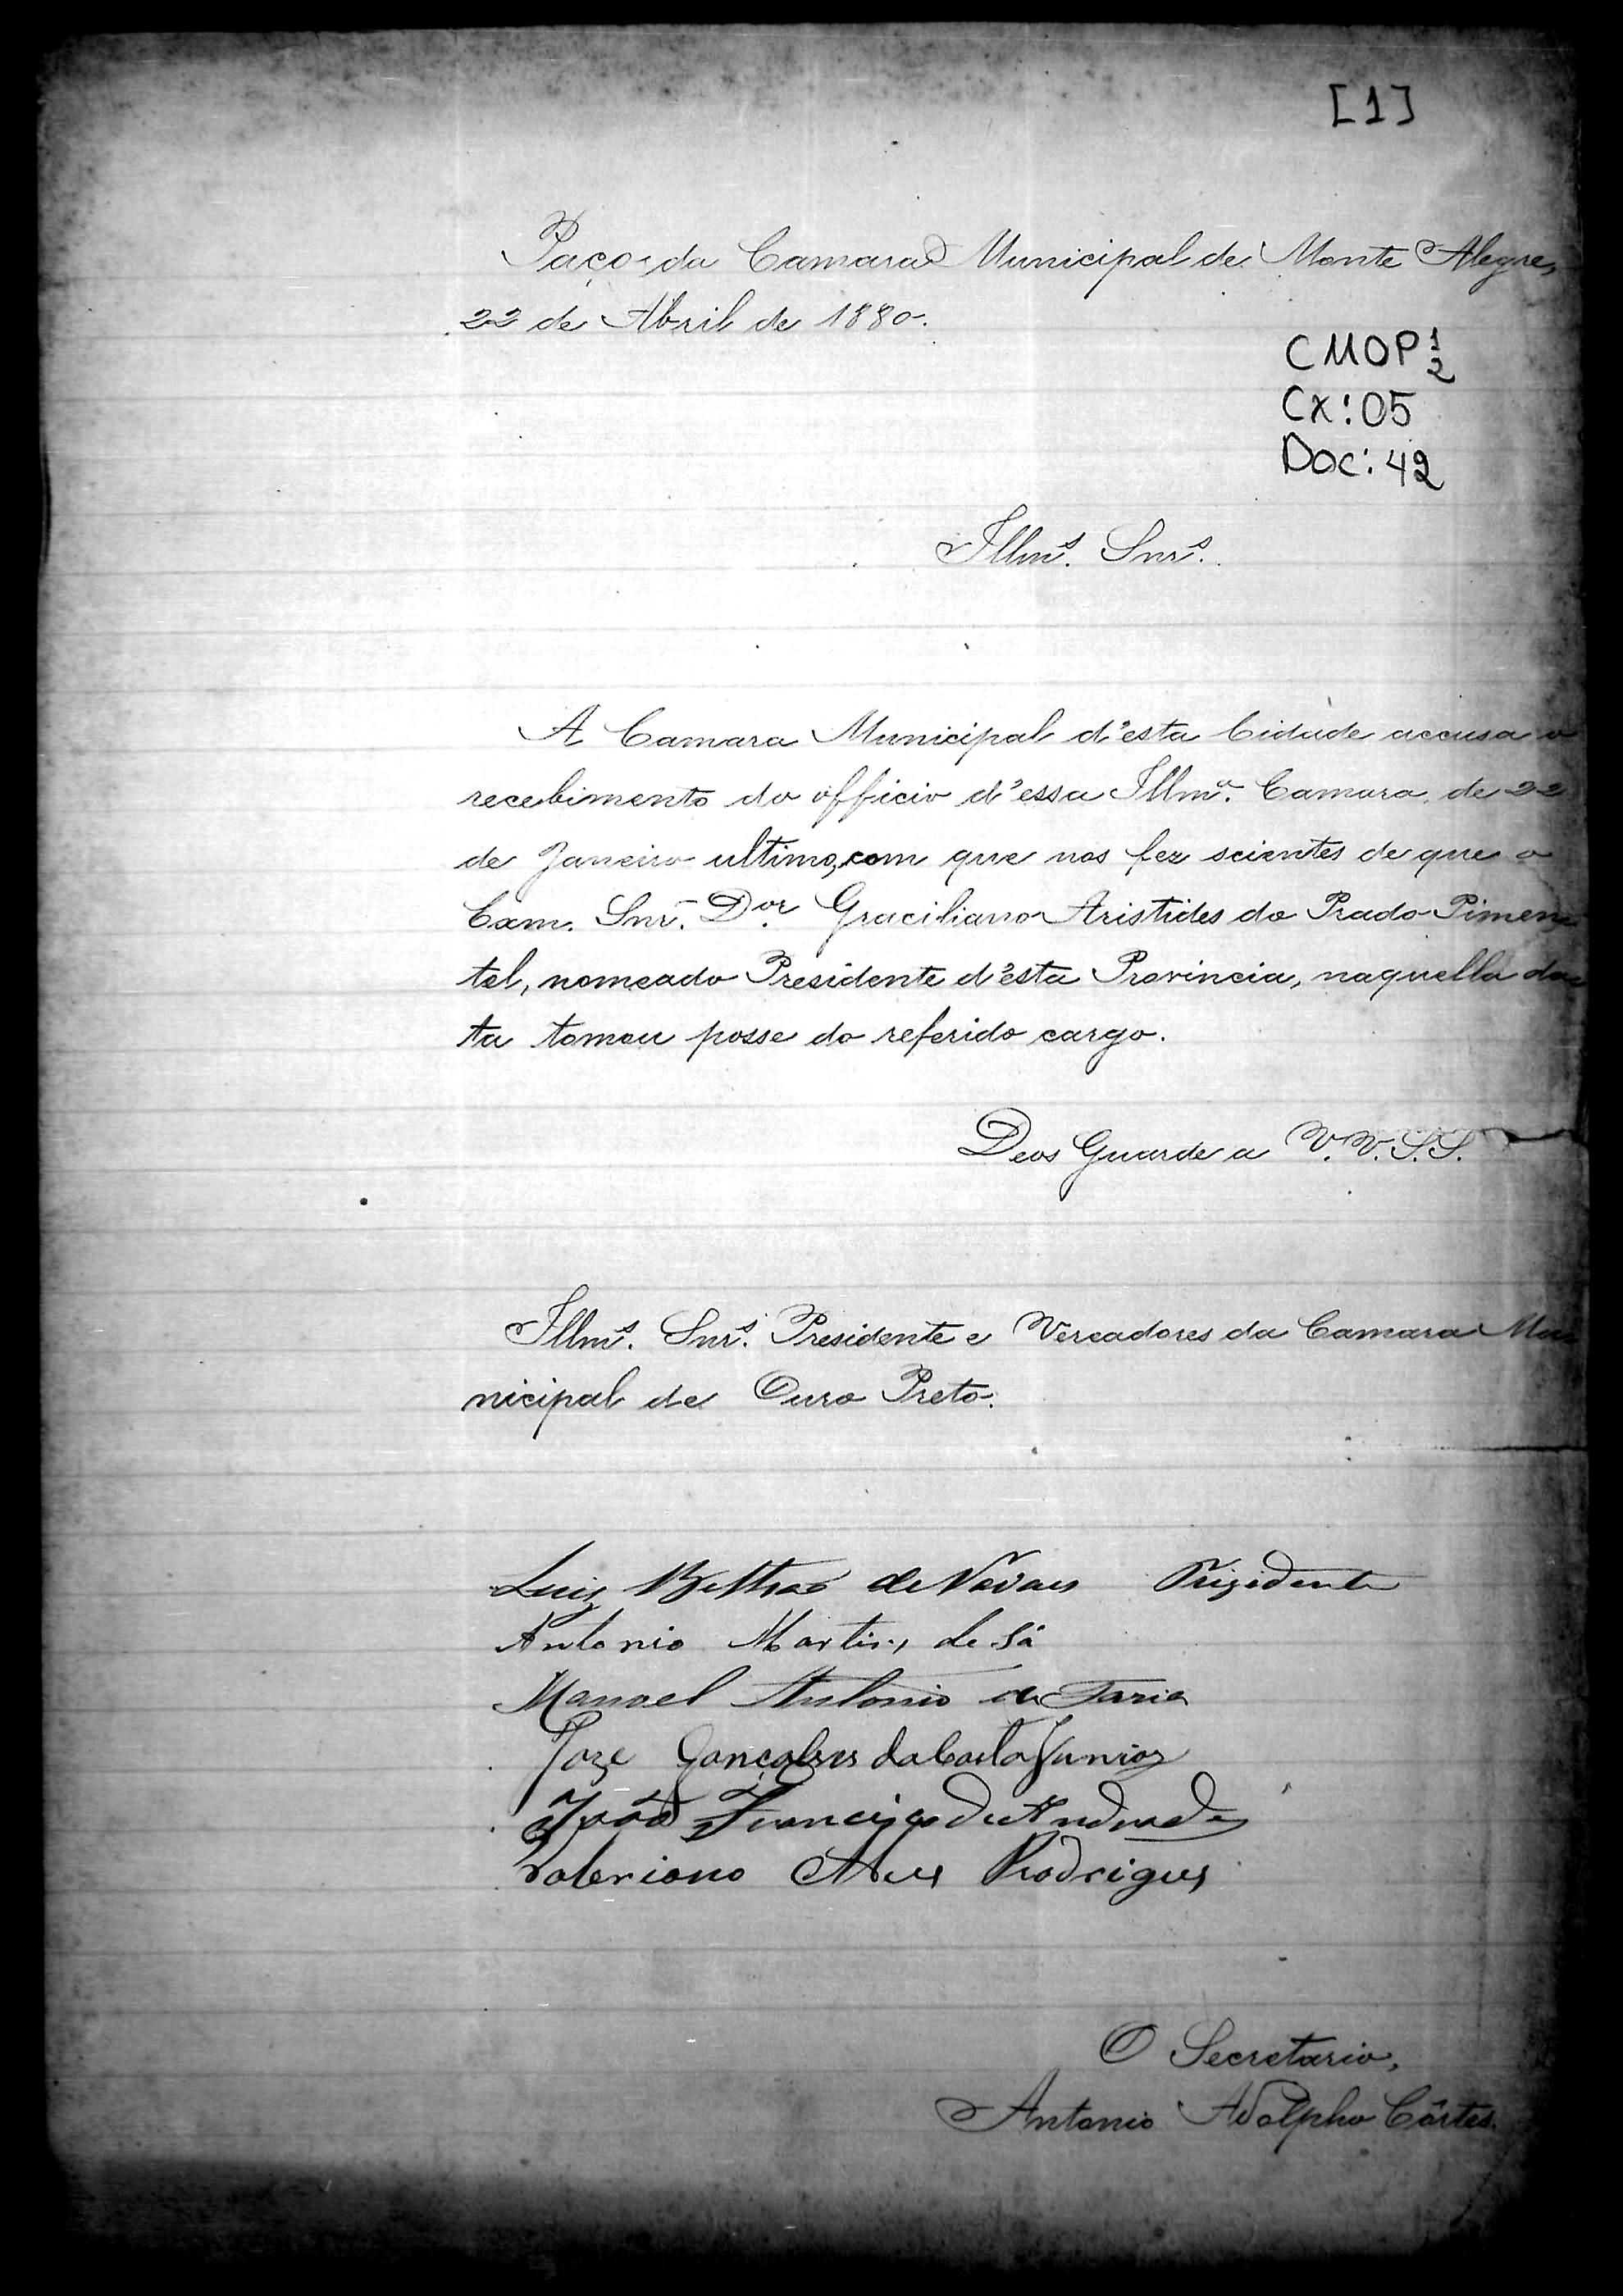 [1]
Paço da Camara Municipal de Monte Alegre,
22 de Abril de 1880.
CMOP 1/2
Cx: 05
Doc: 42
Illmˢ. Snrˢ.
A Camara Municipal d'esta Cidade accusa o
recebimento do officio d'essa Illmᵃ. Camara, de 22
de Janeiro ultimo, com que nos fez scientes de que o
Exm. Snr. Dᵒʳ Graciliano Aristides do Prado Pimen
tel, nomeado Presidente d'esta Provincia, naquella da
ta tomou posse do referido cargo.
Deos Guarde a V.V.S.S.
Illmˢ. Snrˢ. Presidente e Vereadores da Camara Mu
nicipal de Ouro Preto.
Luiz Beltrão de Novaes Prezidente
Antonio Martins de Sá
Manoel Antonio de Faria
Joze Gonçalves da Costa Junior
João Francisco de Andrade
Valeriano Alves Rodrigues
O Secretario,
Antonio Adolpho Côrtes.